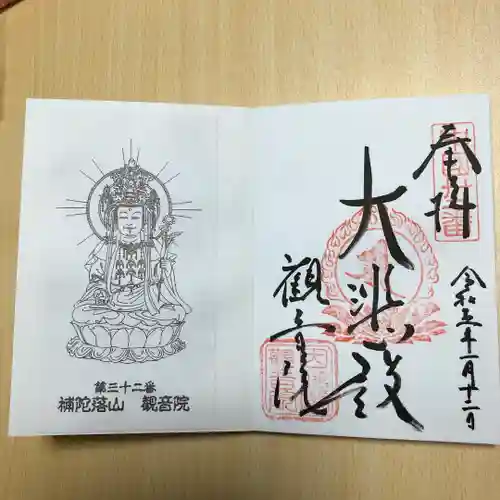 奉拝
大悲殿
観音院
令和五年一月十二日
第三十二番
補陀落山 観音院